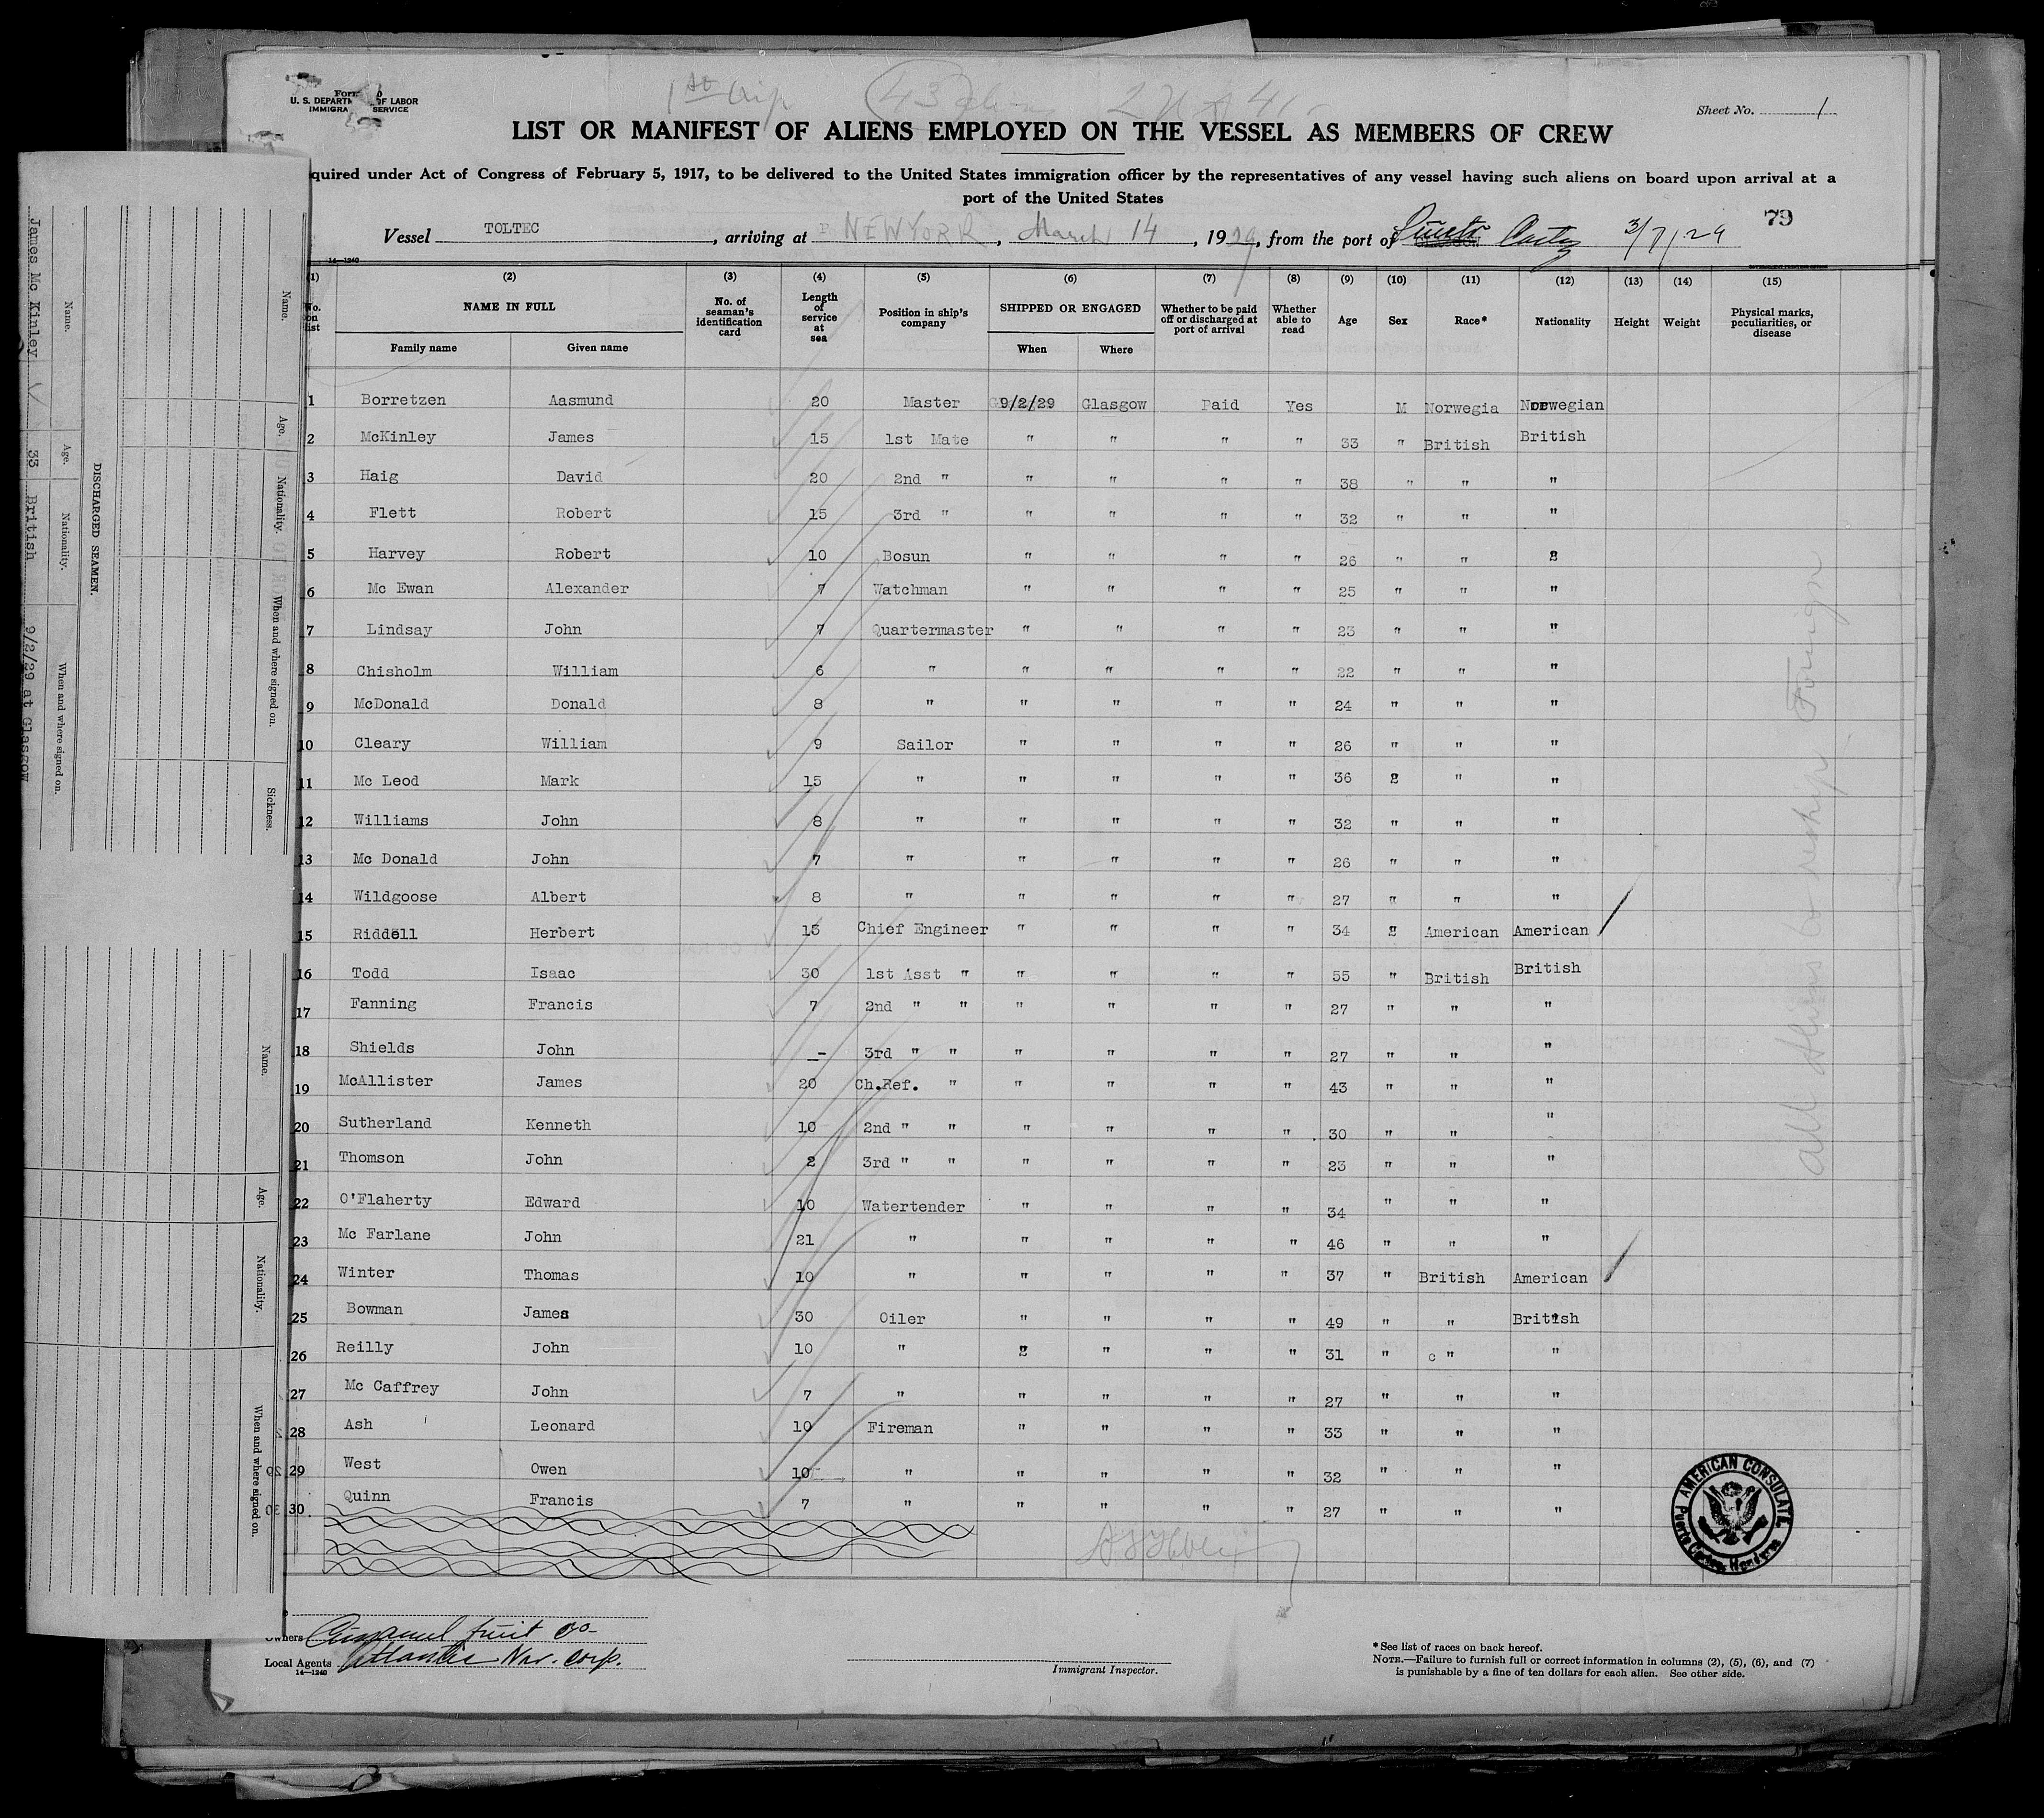 Form
U. S. DEPARTM OF LABOR
IMMIGRA SERVICE
1st trip 43
Sheet No. 1
LIST OR MANIFEST OF ALIENS EMPLOYED ON THE VESSEL AS MEMBERS OF CREW
quired under Act of Congress of February 5, 1917, to be delivered to the United States immigration officer by the representatives of any vessel having such aliens on board upon arrival at a
port of the United States
79
Vessel TOLTEC, arriving at NEW YORK, March 14, 1929, from the port of Puerto Cortez 3/7/29
14—1240
(1) (2) (3) (4) (5) (6) (7) (8) (9) (10) (11) (12) (13) (14) (15)
No. on list NAME IN FULL No. of seaman's identification card Length of service at sea Position in ship's company SHIPPED OR ENGAGED Whether to be paid off or discharged at port of arrival Whether able to read Age Sex Race* Nationality Height Weight Physical marks, peculiarities, or disease
Family name Given name When Where
1 Borretzen Aasmund 20 Master 9/2/29 Glasgow Paid Yes M Norwegia Norwegian
2 McKinley James 15 1st Mate " " " " 33 " British British
3 Haig David 20 2nd " " " " " 38 " " "
4 Flett Robert 15 3rd " " " " " 32 " " "
5 Harvey Robert 10 Bosun " " " " 26 " " "
6 Mc Ewan Alexander 7 Watchman " " " " 25 " " "
7 Lindsay John 7 Quartermaster " " " " 23 " " "
8 Chisholm William 6 " " " " " 22 " " "
9 McDonald Donald 8 " " " " " 24 " " "
10 Cleary William 9 Sailor " " " " 26 " " "
11 Mc Leod Mark 15 " " " " " 36 " " "
12 Williams John 8 " " " " " 32 " " "
13 Mc Donald John 7 " " " " " 26 " " "
14 Wildgoose Albert 8 " " " " " 27 " " "
15 Riddell Herbert 15 Chief Engineer " " " " 34 " American American
16 Todd Isaac 30 1st Asst " " " " " 55 " British British
17 Fanning Francis 7 2nd " " " " " " 27 " " "
18 Shields John -- 3rd " " " " " " 27 " " "
19 McAllister James 20 Ch.Ref. " " " " " 43 " " "
20 Sutherland Kenneth 10 2nd " " " " " " 30 " " "
21 Thomson John 2 3rd " " " " " " 23 " " "
22 O'Flaherty Edward 10 Watertender " " " " 34 " " "
23 Mc Farlane John 21 " " " " " 46 " " "
24 Winter Thomas 10 " " " " " 37 " British American
25 Bowman James 30 Oiler " " " " 49 " " British
26 Reilly John 10 " " " " " 31 " c " "
27 Mc Caffrey John 7 " " " " " 27 " " "
28 Ash Leonard 10 Fireman " " " " 33 " " "
29 West Owen 10 " " " " " 32 " " "
30 Quinn Francis 7 " " " " " 27 " " "
All Aliens to reship Foreign
AMERICAN CONSULATE.
Puerto Cortes, Honduras
Owners Cuyamel fruit co-
Local Agents Atlantic Nav. Corp.
14—1240
Immigrant Inspector.
*See list of races on back hereof.
NOTE.—Failure to furnish full or correct information in columns (2), (5), (6), and (7)
is punishable by a fine of ten dollars for each alien. See other side.
DISCHARGED SEAMEN.
Name. Age. Nationality. When and where signed on.
James Mc Kinley 33 British 9/2/29 at Glasgow
Name. Age. Nationality. When and where signed on. Sickness.
Name. Age. Nationality. When and where signed on.